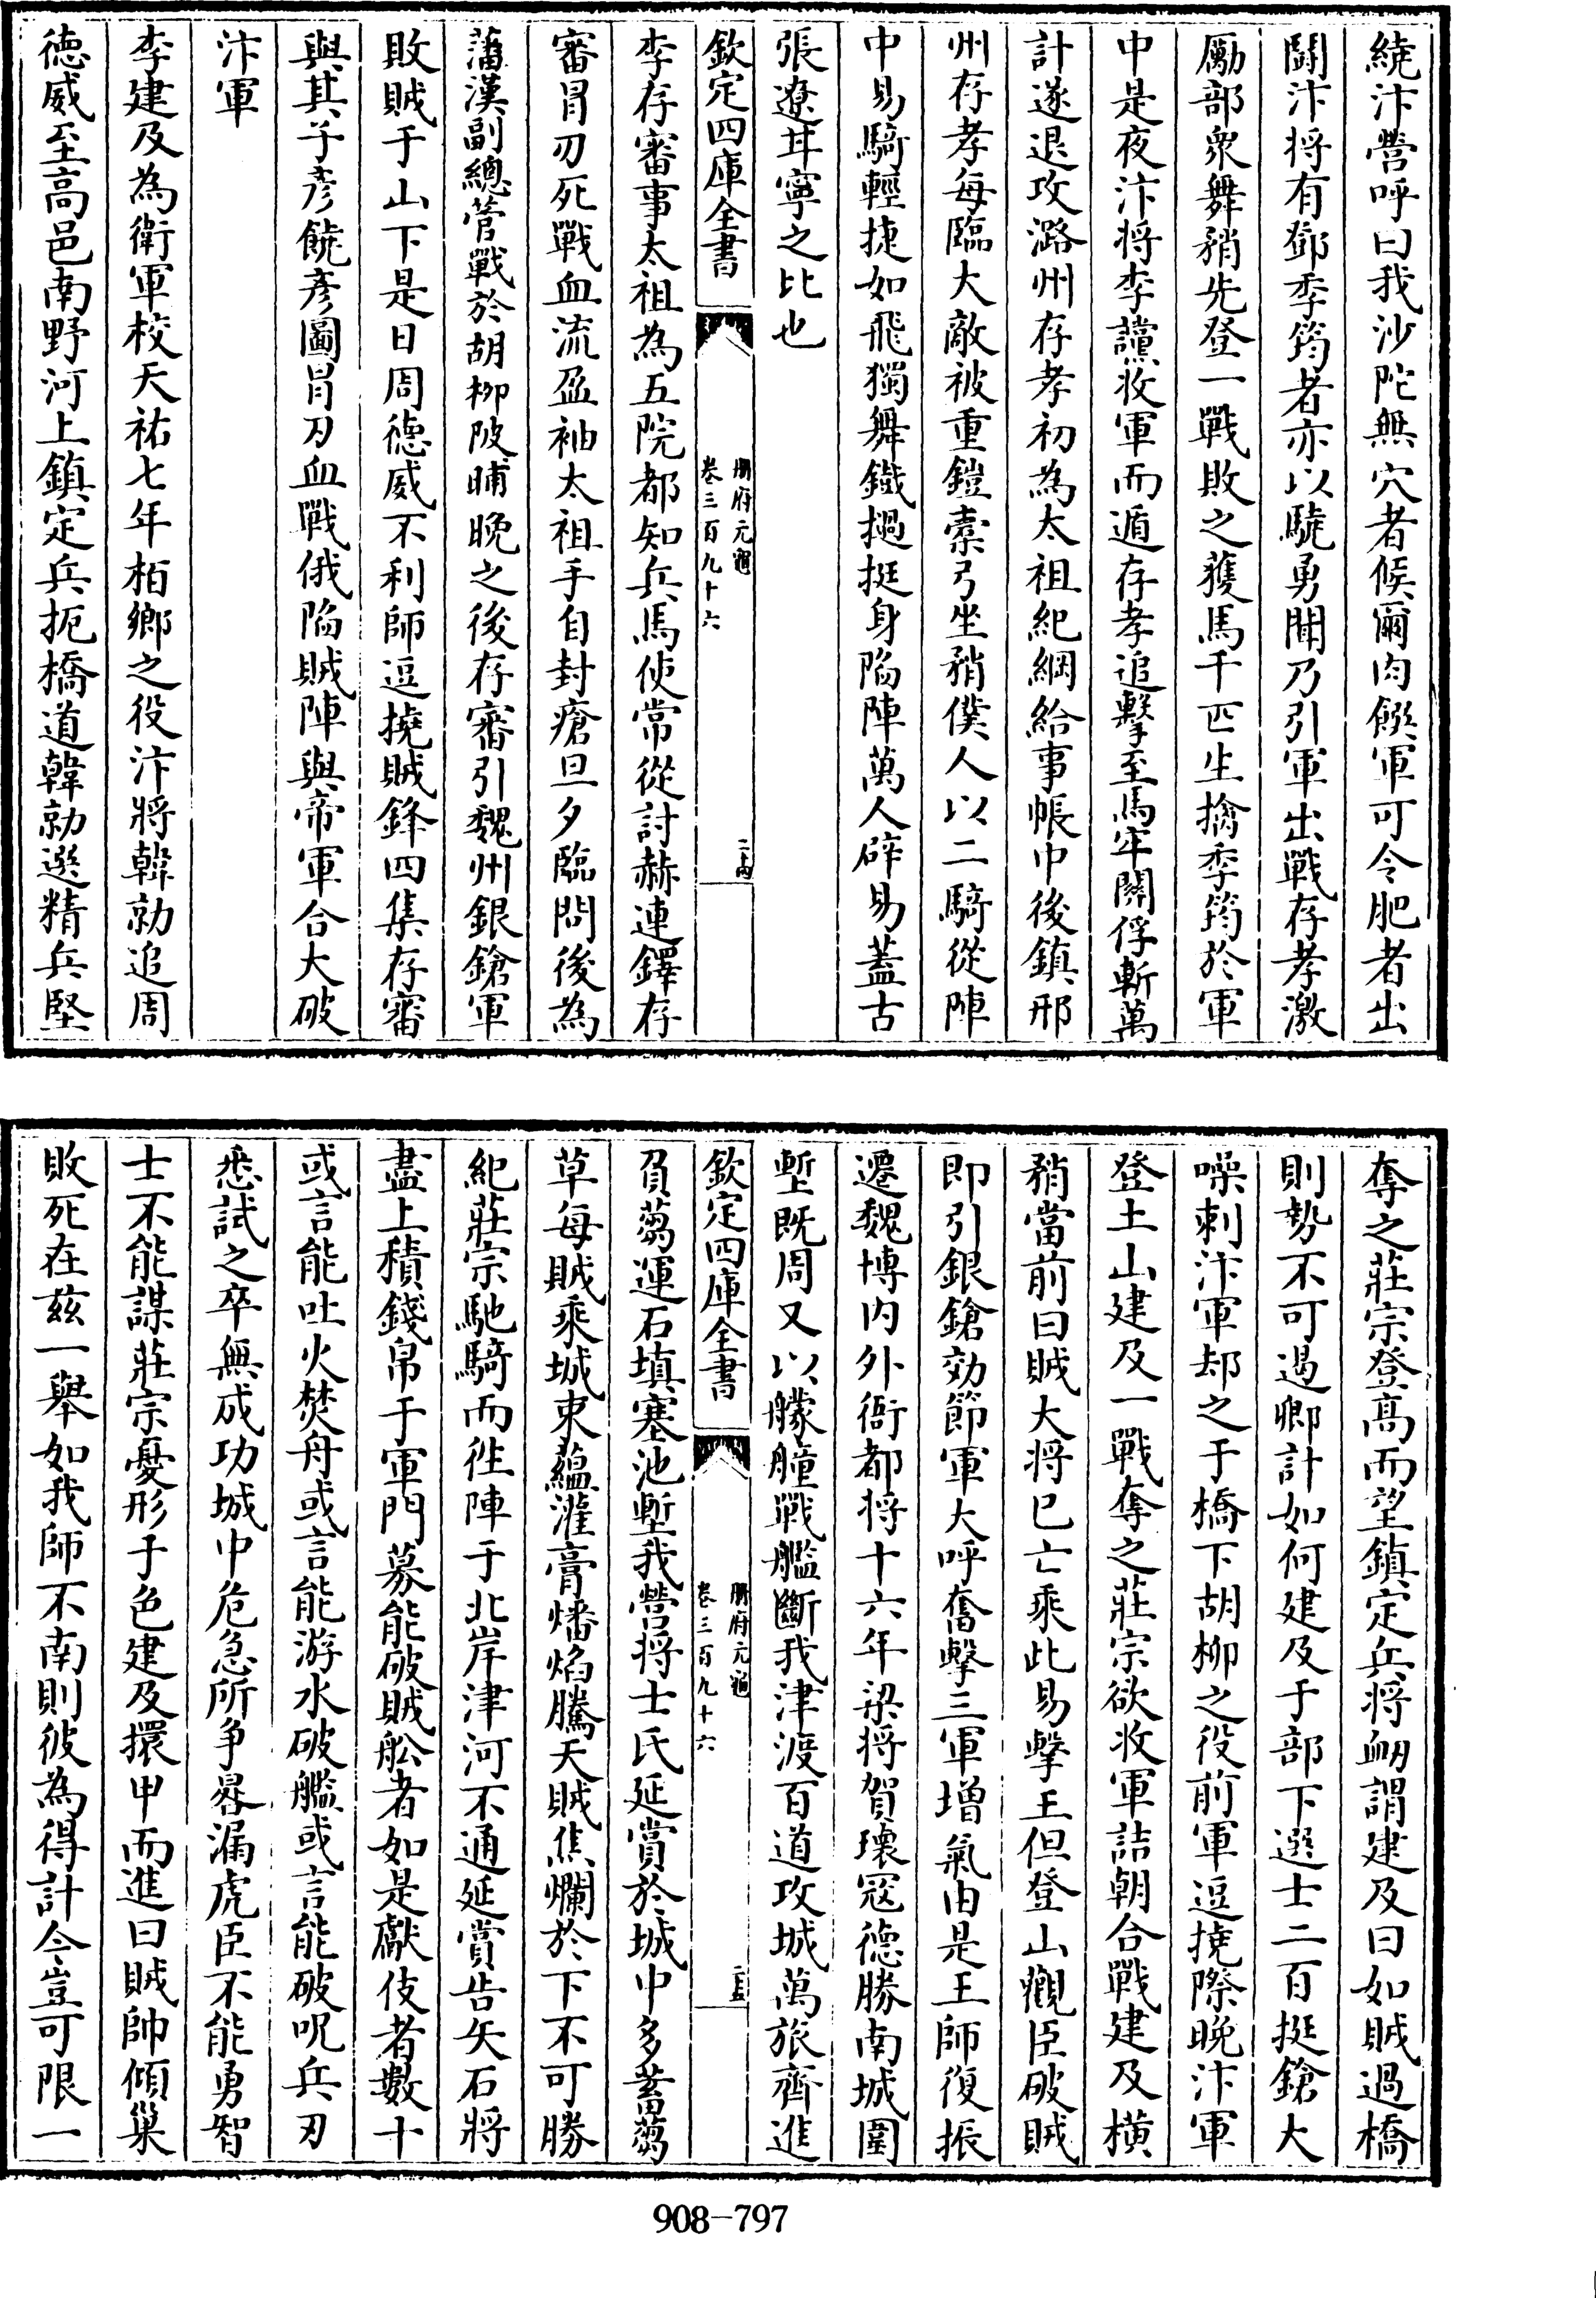 繞汴營呼曰我沙陀無穴者候爾肉饌軍可令肥者出
鬬汴将有鄧季筠者亦以驍勇聞乃引軍出戰存孝激
厲部衆舞矟先登一戰敗之獲馬千匹生擒季筠於軍
中是夜汴将李讜收軍而遁存孝追擊至馬牢關俘斬萬
計遂退攻潞州存孝初為太祖紀綱給事帳中後鎮邢
州存孝每臨大敵被重鎧橐弓坐矟僕人以二騎從陣
中易騎輕捷如飛獨舞鐡撾挺身陷陣萬人辟易蓋古
張遼甘寧之比也
欽定四庫全書
冊府元龜
卷三百九十六
二十四
李存審事太祖為五院都知兵馬使常從討赫連鐸存
審冒刃死戰血流盈袖太祖手自封瘡旦夕臨問後為
蕃漢副總管戰於胡柳陂晡晚之後存審引魏州銀鎗軍
敗賊于山下是日周德威不利師逗撓賊鋒四集存審
與其子彦饒彦圖冒刃血戰俄陷賊陣與帝軍合大破
汴軍
李建及為衛軍校天祐七年栢鄉之役汴將韓勍追周
德威至高邑南野河上鎮定兵扼橋道韓勍選精兵堅
奪之莊宗登高而望鎮定兵将衂謂建及曰如賊過橋
則勢不可遏卿計如何建及于部下選士二百挺鎗大
噪刺汴軍却之于橋下胡柳之役前軍逗撓際晚汴軍
登土山建及一戰奪之莊宗欲收軍詰朝合戰建及橫
矟當前曰賊大将已亡乘此易擊王但登山觀臣破賊
即引銀鎗効節軍大呼奮擊三軍增氣由是王師復振
遷魏博内外衙都将十六年梁将賀瓌冦德勝南城圍
塹既周又以艨艟戰艦斷我津渡百道攻城萬旅齊進
欽定四庫全書
冊府元龜
卷三百九十六
二十五
負蒭運石填塞池塹我營将士氏延賞於城中多蓄蒭
草每賊乘城束藴灌膏燔焰騰天賊焦爛於下不可勝
紀莊宗馳騎而徃陣于北岸津河不通延賞告矢石將
盡上積錢帛于軍門募能破賊舩者如是獻伎者數十
或言能吐火焚舟或言能游水破艦或言能破呪兵刃
悉試之卒無成功城中危急所争晷漏虎臣不能勇智
士不能謀莊宗憂形于色建及擐甲而進曰賊帥傾巢
敗死在兹一舉如我師不南則彼為得計今豈可限一
908-797